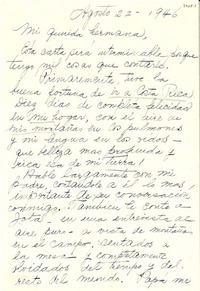 Agosto 22 - 1946
Mi querida hermana,
Esta carta será interminable porque
tengo mil cosas que contarle.
Primeramente, tuve la
buena fortuna de ir a Costa Rica
Diez días de completa felicidad
en mi hogar, con el aire de
mis montañas en los pulmones
y mi lengua en los oídos -
que belleza mas profunda y
rica es la de mi tierra!
Hablé largamente con mi
padre, contándole a él lo más
importante de su conversación
conmigo. También le conté a
en una entrevista al
aire puro - a vista de montañas
en el campo. Sentados a
la mesa y completamente
olvidados del tiempo y del
resto del mundo. Papá me